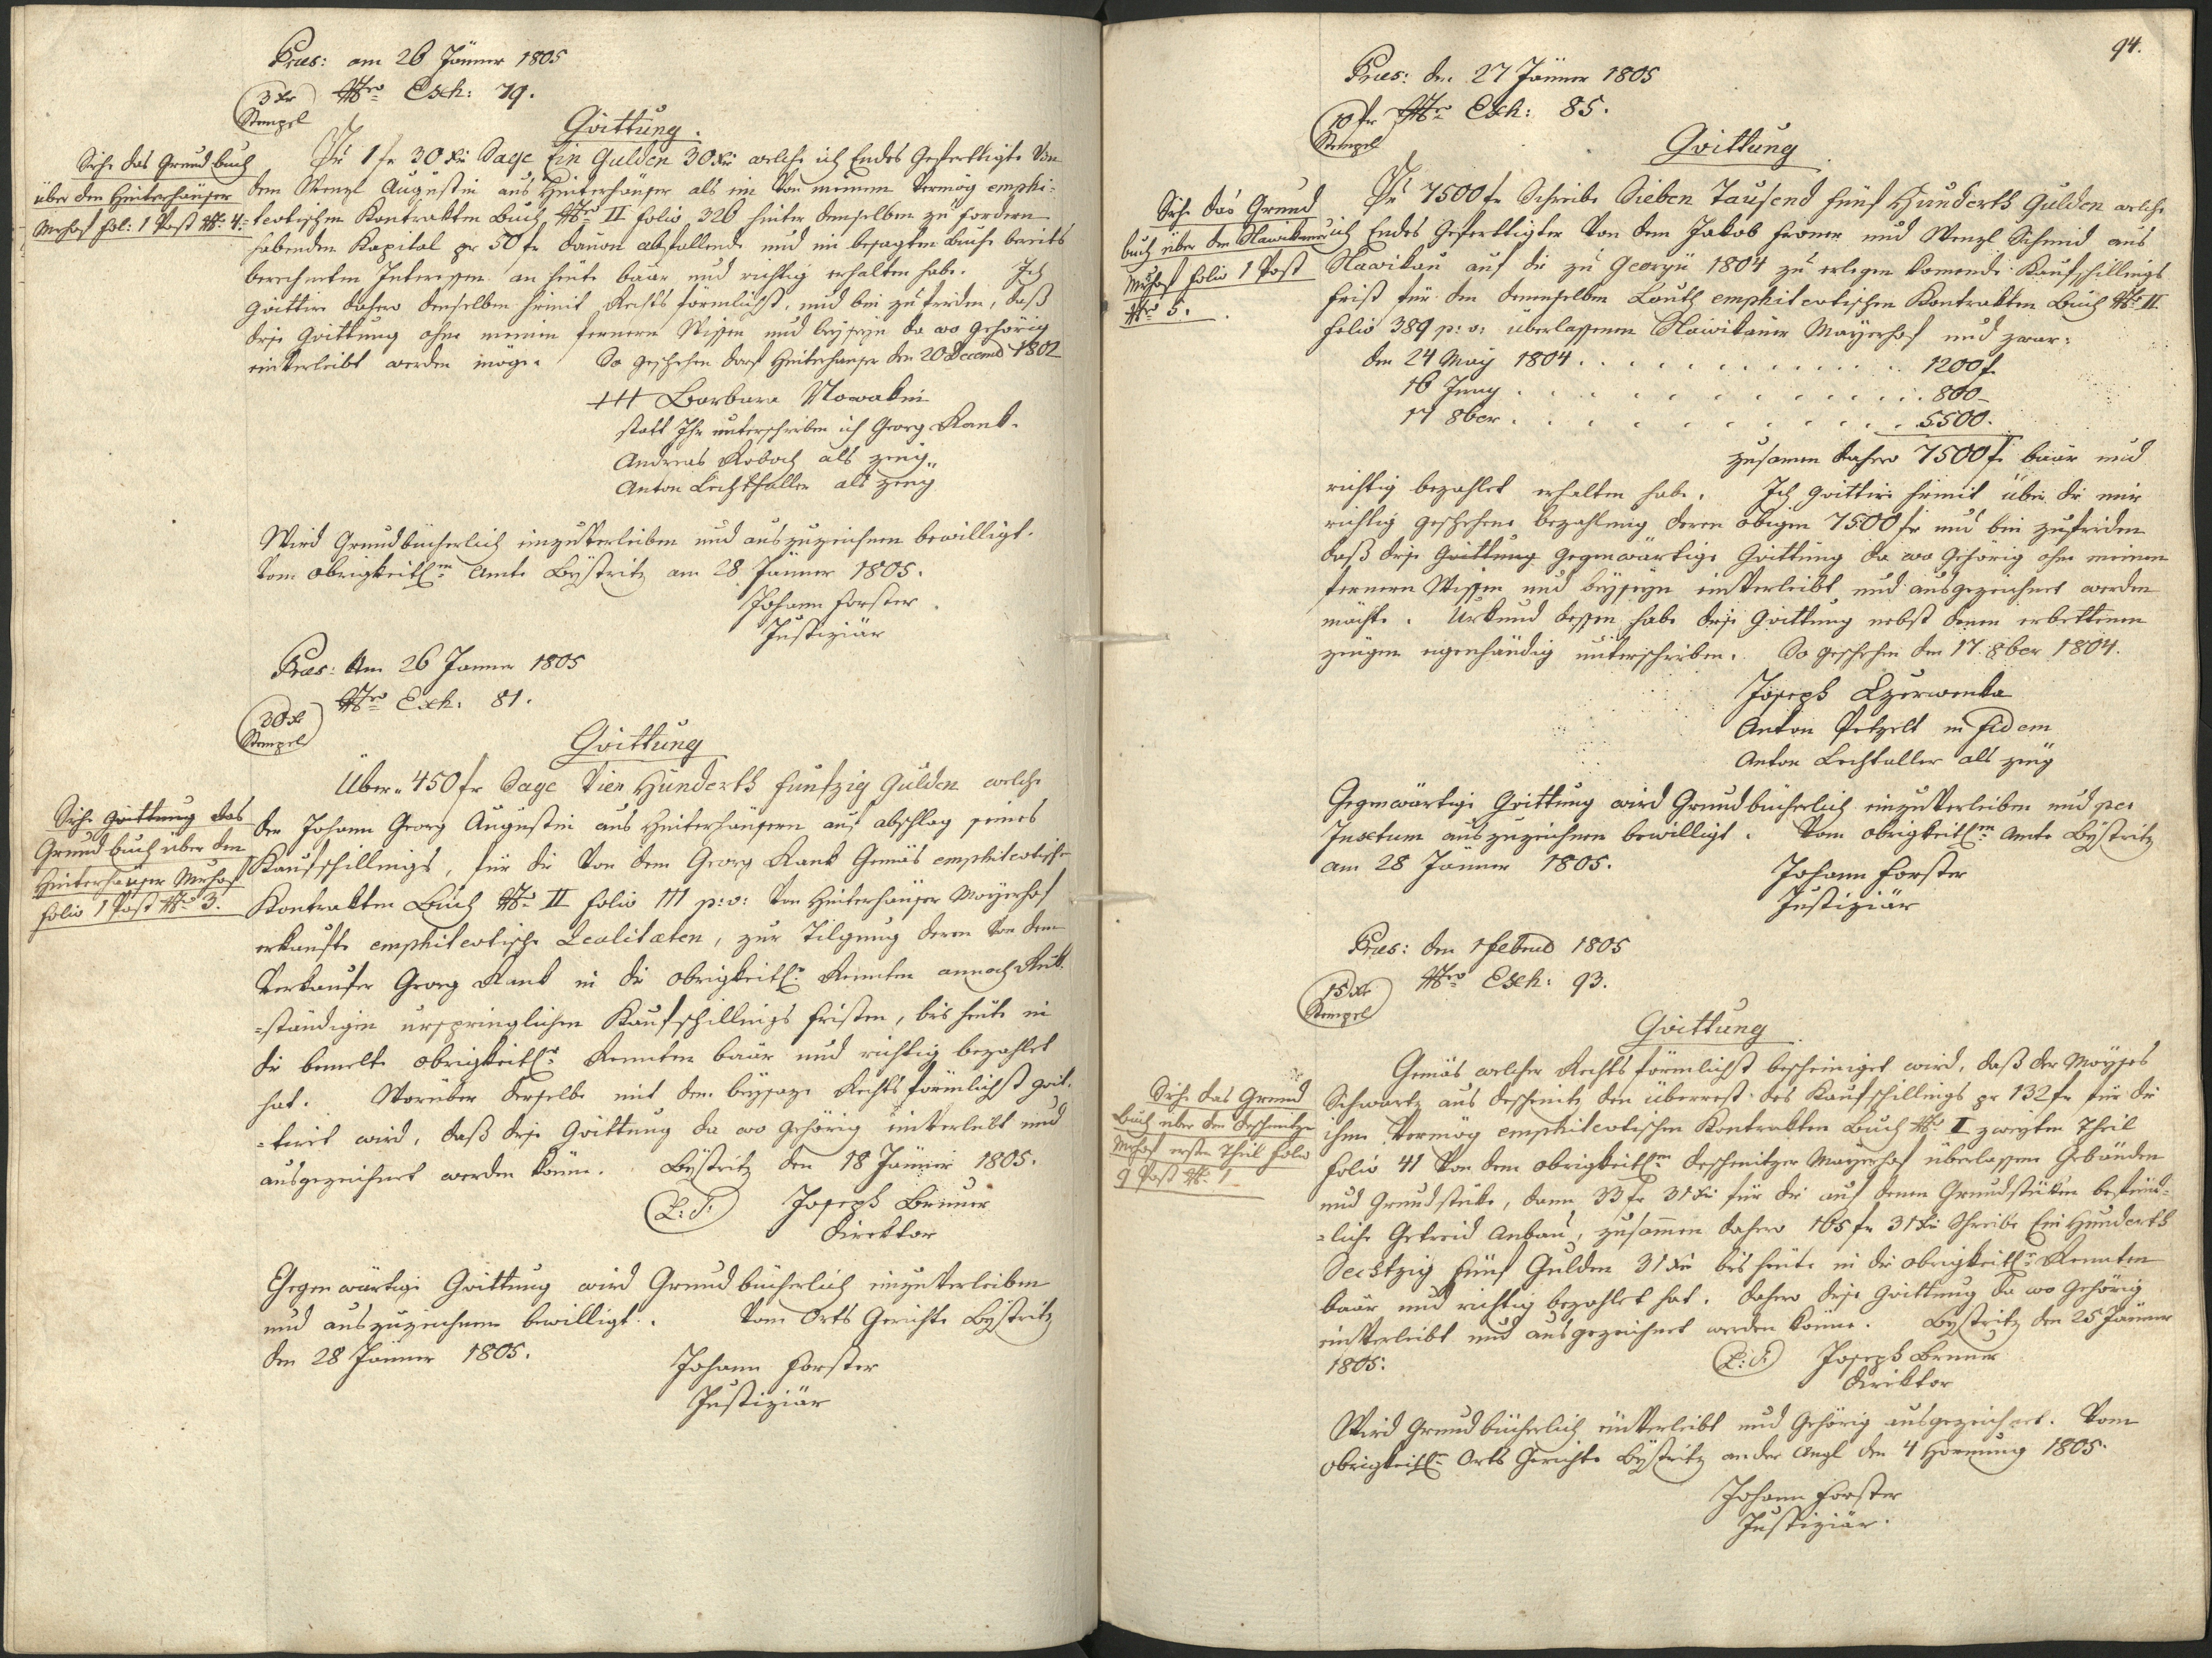 Præs: am 26 Jänner 1805
3 Xr Stempel
Nro Exh: 79.
Quittung.
Siehe das Grundbuch
über den Hinterhäuser
Mrhof fol: 1 Post No 4.
Pr 1 fr 30 Xr Sage Ein Gulden 30 Xr welche ich Endes Gefertigte von
dem Wenzl Augustin aus Hinterhäuser als im von meinem vermög emphi-
teotischen Kontrakten Buch Nro II folio 326 hinter demselben zu fordern
habenden Kapital pr 50 fr davon abfallende und in besagten Buche bereits
berechneten Interessen an heute baar und richtig erhalten habe. Ich
quittire dahero denselben hiemit Rechts förmlichst, und bin zufrieden, daß
diese Quittung ohne meinen fernern Wissen und beyseyn da wo gehörig
einverleibt werden möge. So geschehen Dorf Hinterhäuser den 20 Decemb 1802
+++ Barbara Nowakin
statt Ihr unterschrieben ich Georg Rank.
Andreas Koboch als zeug„
Anton Lechthaller als zeug
Wird Grundbücherlich einzuverleiben und auszuzeichnen bewilligt.
Vom obrigkeitlen Amte Bystritz am 28 Jänner 1805.
Johann Forster
Justiziär
Præs: Am 26 Janner 1805
Nro Exh: 81.
30 Xr
Stempel
Quittung
Siehe Quittung das
Grundbuch über den
Hinterhäuser Mrhof
folio 1 Post No 3.
Über„ 450 fr Sage Vier Hunderth funfzig Gulden welche
der Johann Georg Augustin aus Hinterhäusern auf abschlag seines
Kaufschillings, für die von dem Georg Rank Gemäs emphiteotische
Kontrakten Buch No II folio 111 p: v: von Hinterhäuser Mayerhof
erkaufte emphiteotische Lealitæten, zur Tilgung deren von dem
Verkaufer Georg Rank in die obrigkeitle Rennten annoch Rük-
=ständigen urspringlichen Kaufschillings fristen, bis heute in
die bemelte obrigkeitle Rennten baar und richtig bezahlet
hat. Worüber derselbe mit dem beysaze Rechts förmlichst quit-
=tiret wird, daß diese Quittung da wo gehörig einverleibt und
ausgezeichnet werden könne. Bystritz den 18 Jänner 1805.
L: S: Joseph Bruner
Direktor
Gegenwärtige Quittung wird Grundbücherlich einzuverleiben
und auszuzeichnen bewilligt. Vom Orts Gerichte Bystritz
den 28 Jänner 1805.
Johann Forster
Justiziär
94.
Præs: den 27 Jänner 1805
10 fr Stempel
Nro Exh: 85.
Quittung
Siehe das Grund
buch über den Hawikauer
Mrhof folio 1 Post
Nro 5.
Pr 7500 fr Schreibe Sieben Tausend fünf Hunderth Gulden welche
ich Endes Gefertigter von dem Jakob Froner und Wenzl Schmid aus
Hawikau auf die zu Georgii 1804 zu erlegen komende Kaufschillings
frist für den demselben Lauth emphiteotischen Kontrakten Buch No II
folio 389 p: v: überlassenen Hawikauer Mayerhof und zwar:
den 24 May 1804 . . . . . . . . . . 1200 f
16 Juny . . . . . . . . . . 800 –
17 8ber . . . . . . . . . . 5500.
zusamen dahero 7500 fr baar und
richtig bezahlet erhalten habe. Ich quittire hiemit über die mir
richtig geschehene bezahlung deren obigen 7500 fr und bin zufrieden
daß diese Quittung gegenwärtige Quittung da wo gehörig ohne meinen
fernern Wissen und beyseyn einverleibt und ausgezeichnet werden
möchte. Urkund dessen habe diese Quittung nebst denen erbettenen
zeugen eigenhändig unterschrieben. So geschehen den 17. 8ber 1804.
Joseph Czerwenka
Anton Petzelt in fidem
Anton Lechtaller als zeug
Gegenwärtige Quittung wird Grundbücherlich einzuverleiben und per
Insetum auszuzeichnen bewilligt. Vom obrigkeitlen Amte Bystritz
am 28 Jänner 1805.
Johann Forster
Justiziär
Præs: den 1 Februd 1805
15 Xr
Stempel
Nro Exh: 93.
Quittung
Siehe das Grund
buch über den Deschenitzer
Mrhof erster Theil folio
9 Post No 1
Gemäs welcher Rechts förmlichst bescheiniget wird, daß der Moyses
Schwartz aus Deschenitz den überrest des Kaufschillings pr 132 fr für die
ihm Vermög emphiteotischen Kontrakten Buch No I zweyten Theil
folio 41 von dem obrigkeitlen Deschenitzer Mayerhof überlassene Gebäuden
und Grundstüke, dann 33 fr 31 Xr für die auf denen Grundstüken befind-
=liche Getreid Anbau, zusammen dahero 165 fr 31 Xr Schreibe Ein Hunderth
Sechtzig fünf Gulden 31 Xr bis heute in die obrigkeitle Rennten
baar und richtig bezahlet hat. Dahero diese Quittung da wo gehörig
einverleibt und ausgezeichnet werden könne. Bystritz den 25 Jänner
1805.
L: S: Joseph Bruner
Direktor
Wird Grundbücherlich einverleibt und Gehörig ausgezeichnet. Vom
obrigkeitle Orts Gerichte Bystritz an der Angl den 4 Hornung 1805.
Johann Forster
Justiziär.